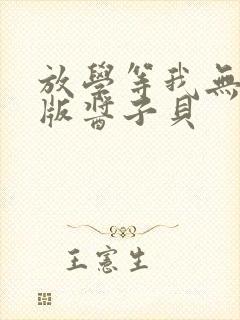 放學等我無
版醬子貝
王憲生